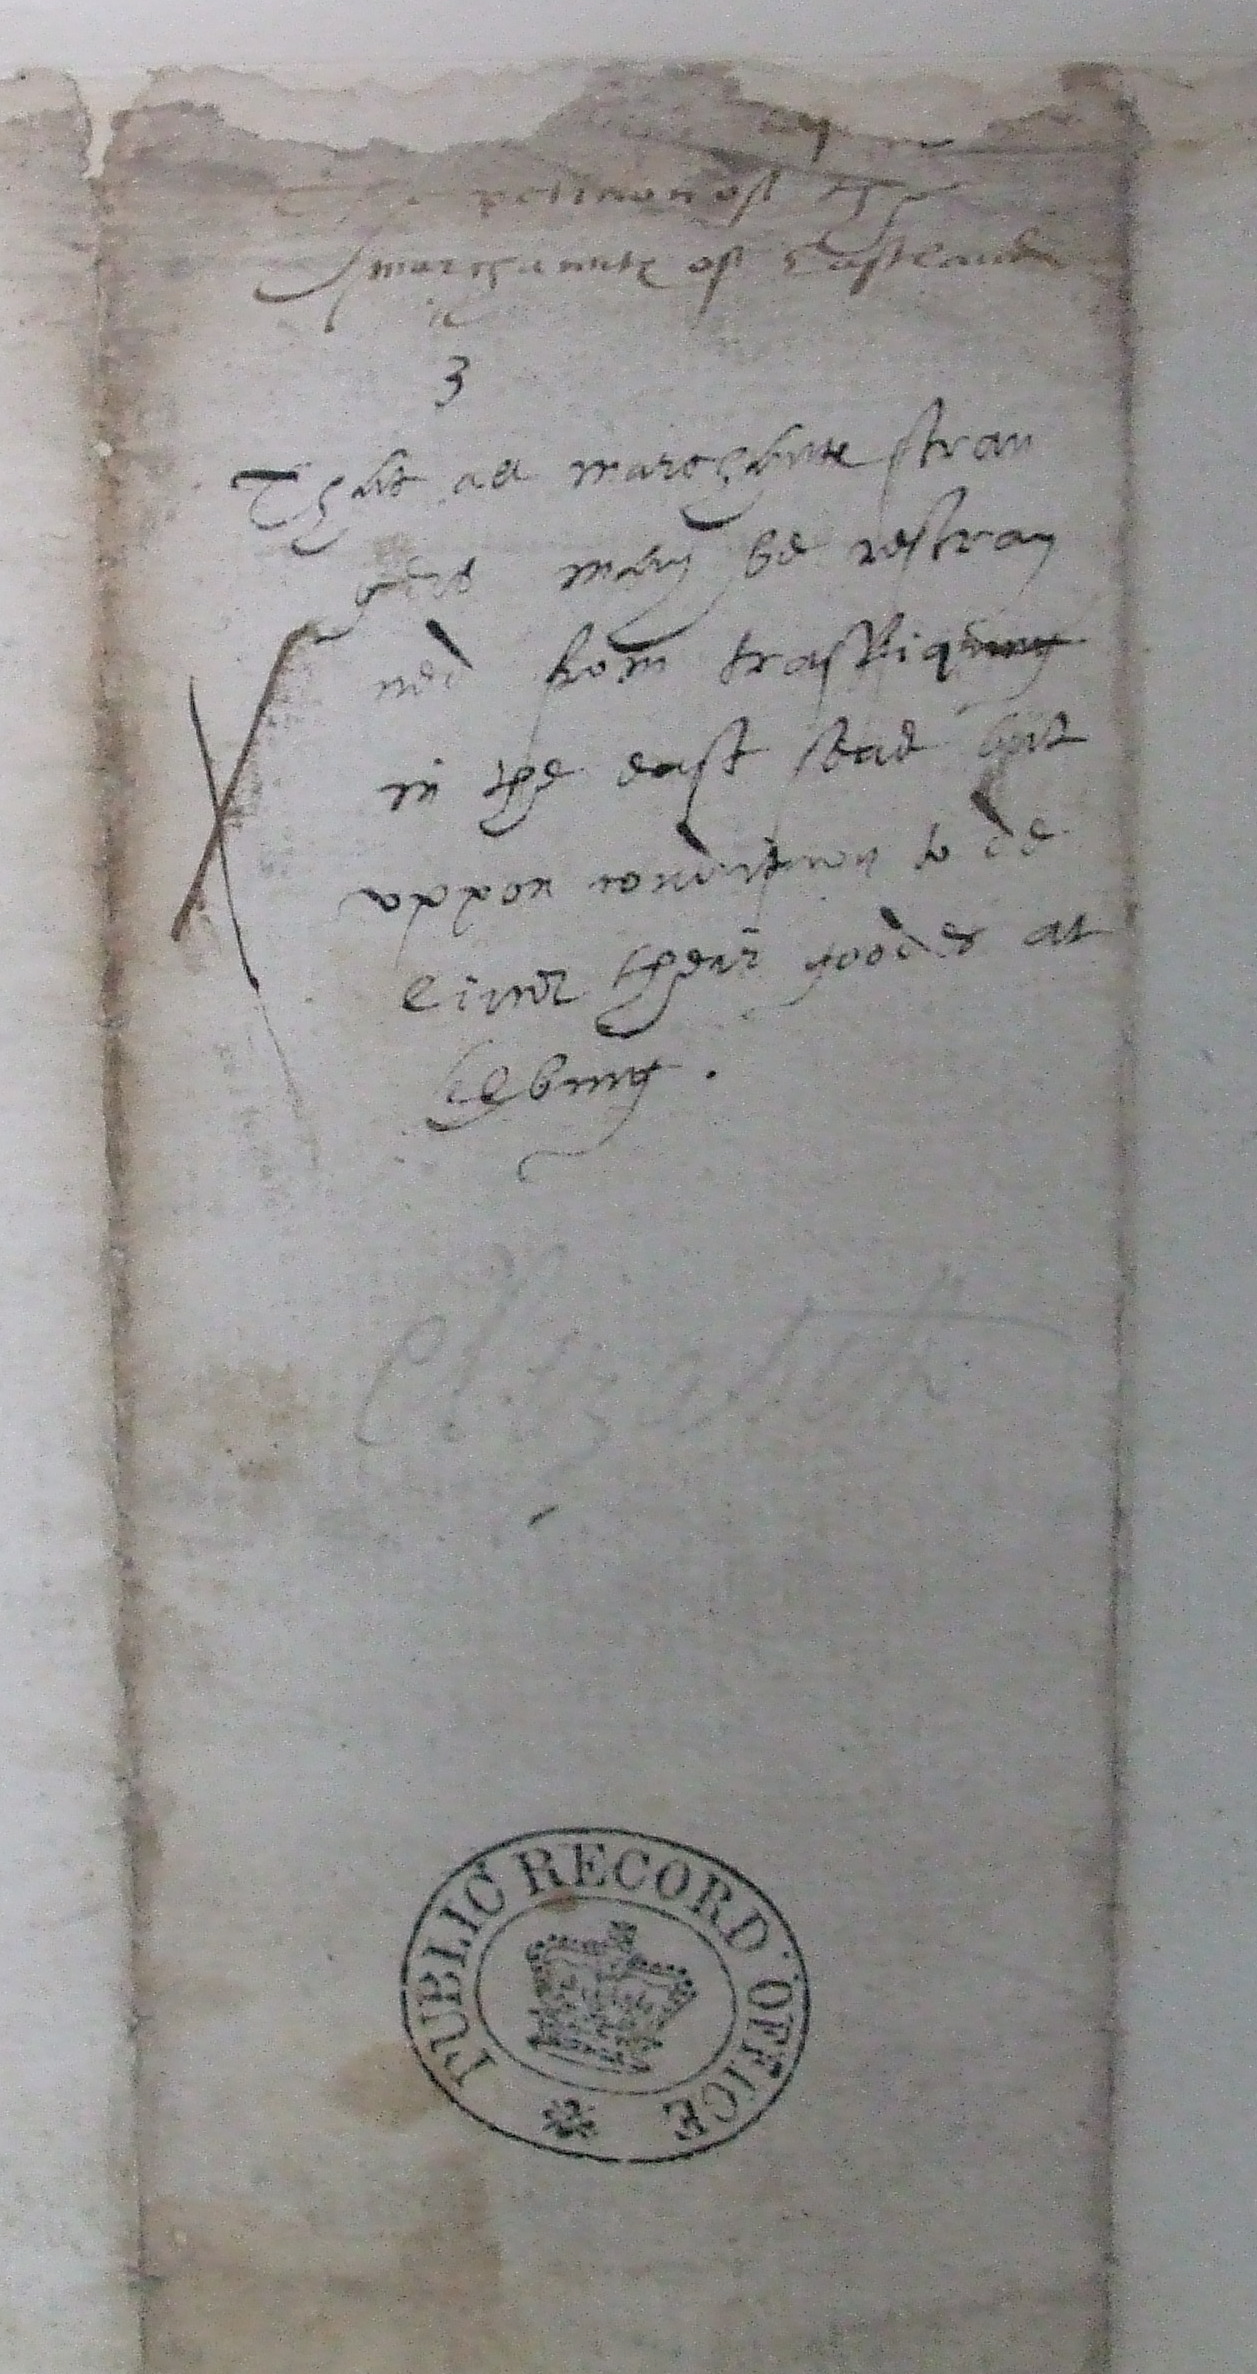 The peticion of the
marchantes of Eastlande
3
That all marchante stran
gers may be restray
ned from traffiquing
in the east seae but
uppon condition to de
liver their goodes at
Elbing.
Elizabeth
PUBLIC RECORD OFFICE